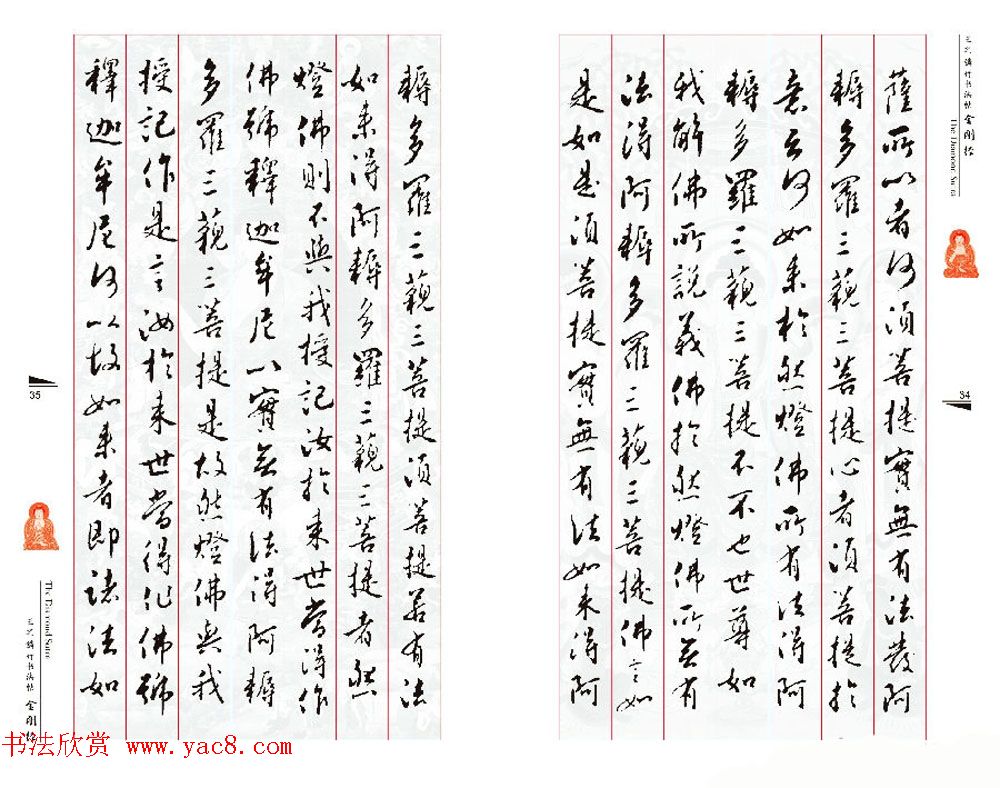 金剛經
The Diamond Sutra
34
薩所以者何須菩提實無有法發阿
耨多羅三藐三菩提心者須菩提於
意云何如来於然燈佛所有法得阿
耨多羅三藐三菩提不不也世尊如
我解佛所說義佛於然燈佛所无有
法得阿耨多羅三藐三菩提佛言如
是如是須菩提實無有法如来得阿
耨多羅三藐三菩提須菩提若有法
如来得阿耨多羅三藐三菩提者然
燈佛則不與我授記汝於来世當得作
佛號釋迦牟尼以實无有法得阿耨
多羅三藐三菩提是故然燈佛與我
授記作是言汝於来世當得作佛號
釋迦牟尼何以故如来者即諸法如
35
The Diamond Sutra
金剛經
书法欣赏 www.yac8.com